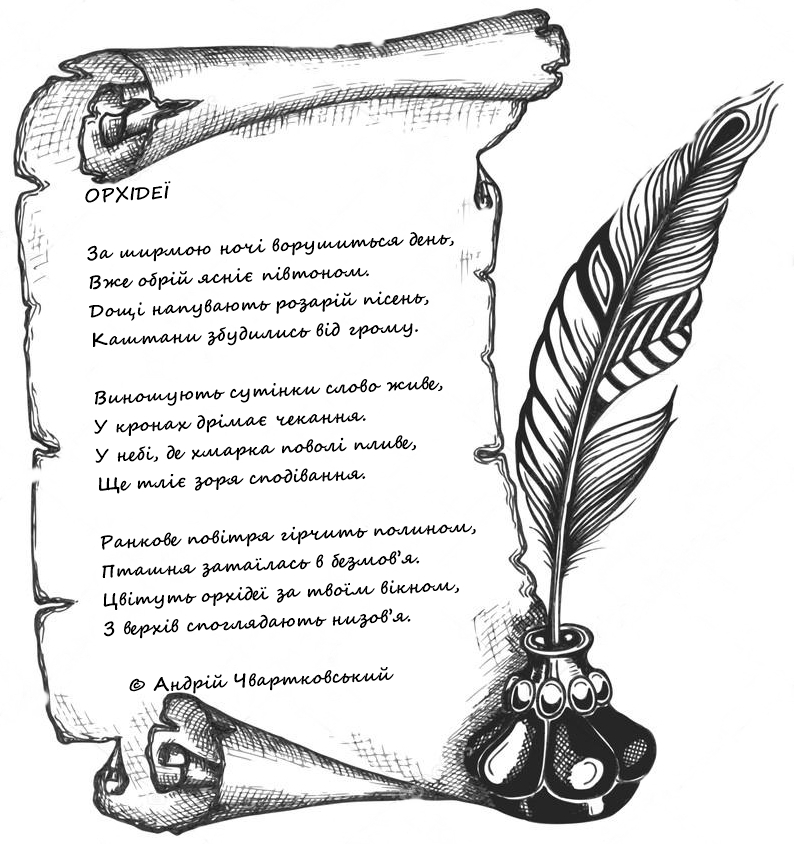 ОРХІДЕЇ
За ширмою ночі ворушиться день,
Вже обрій ясніє півтоном.
Дощі напувають розарій пісень,
Каштани збудились від грому.
Виношують сутінки слово живе,
У кронах дрімає чекання.
У небі, де хмарка поволі пливе,
Ще тліє зоря сподівання.
Ранкове повітря гірчить полином,
Пташня затаїлась в безмов'я.
Цвітуть орхідеї за твоїм вікном,
З верхів споглядають низов'я.
© Андрій Чвартковський